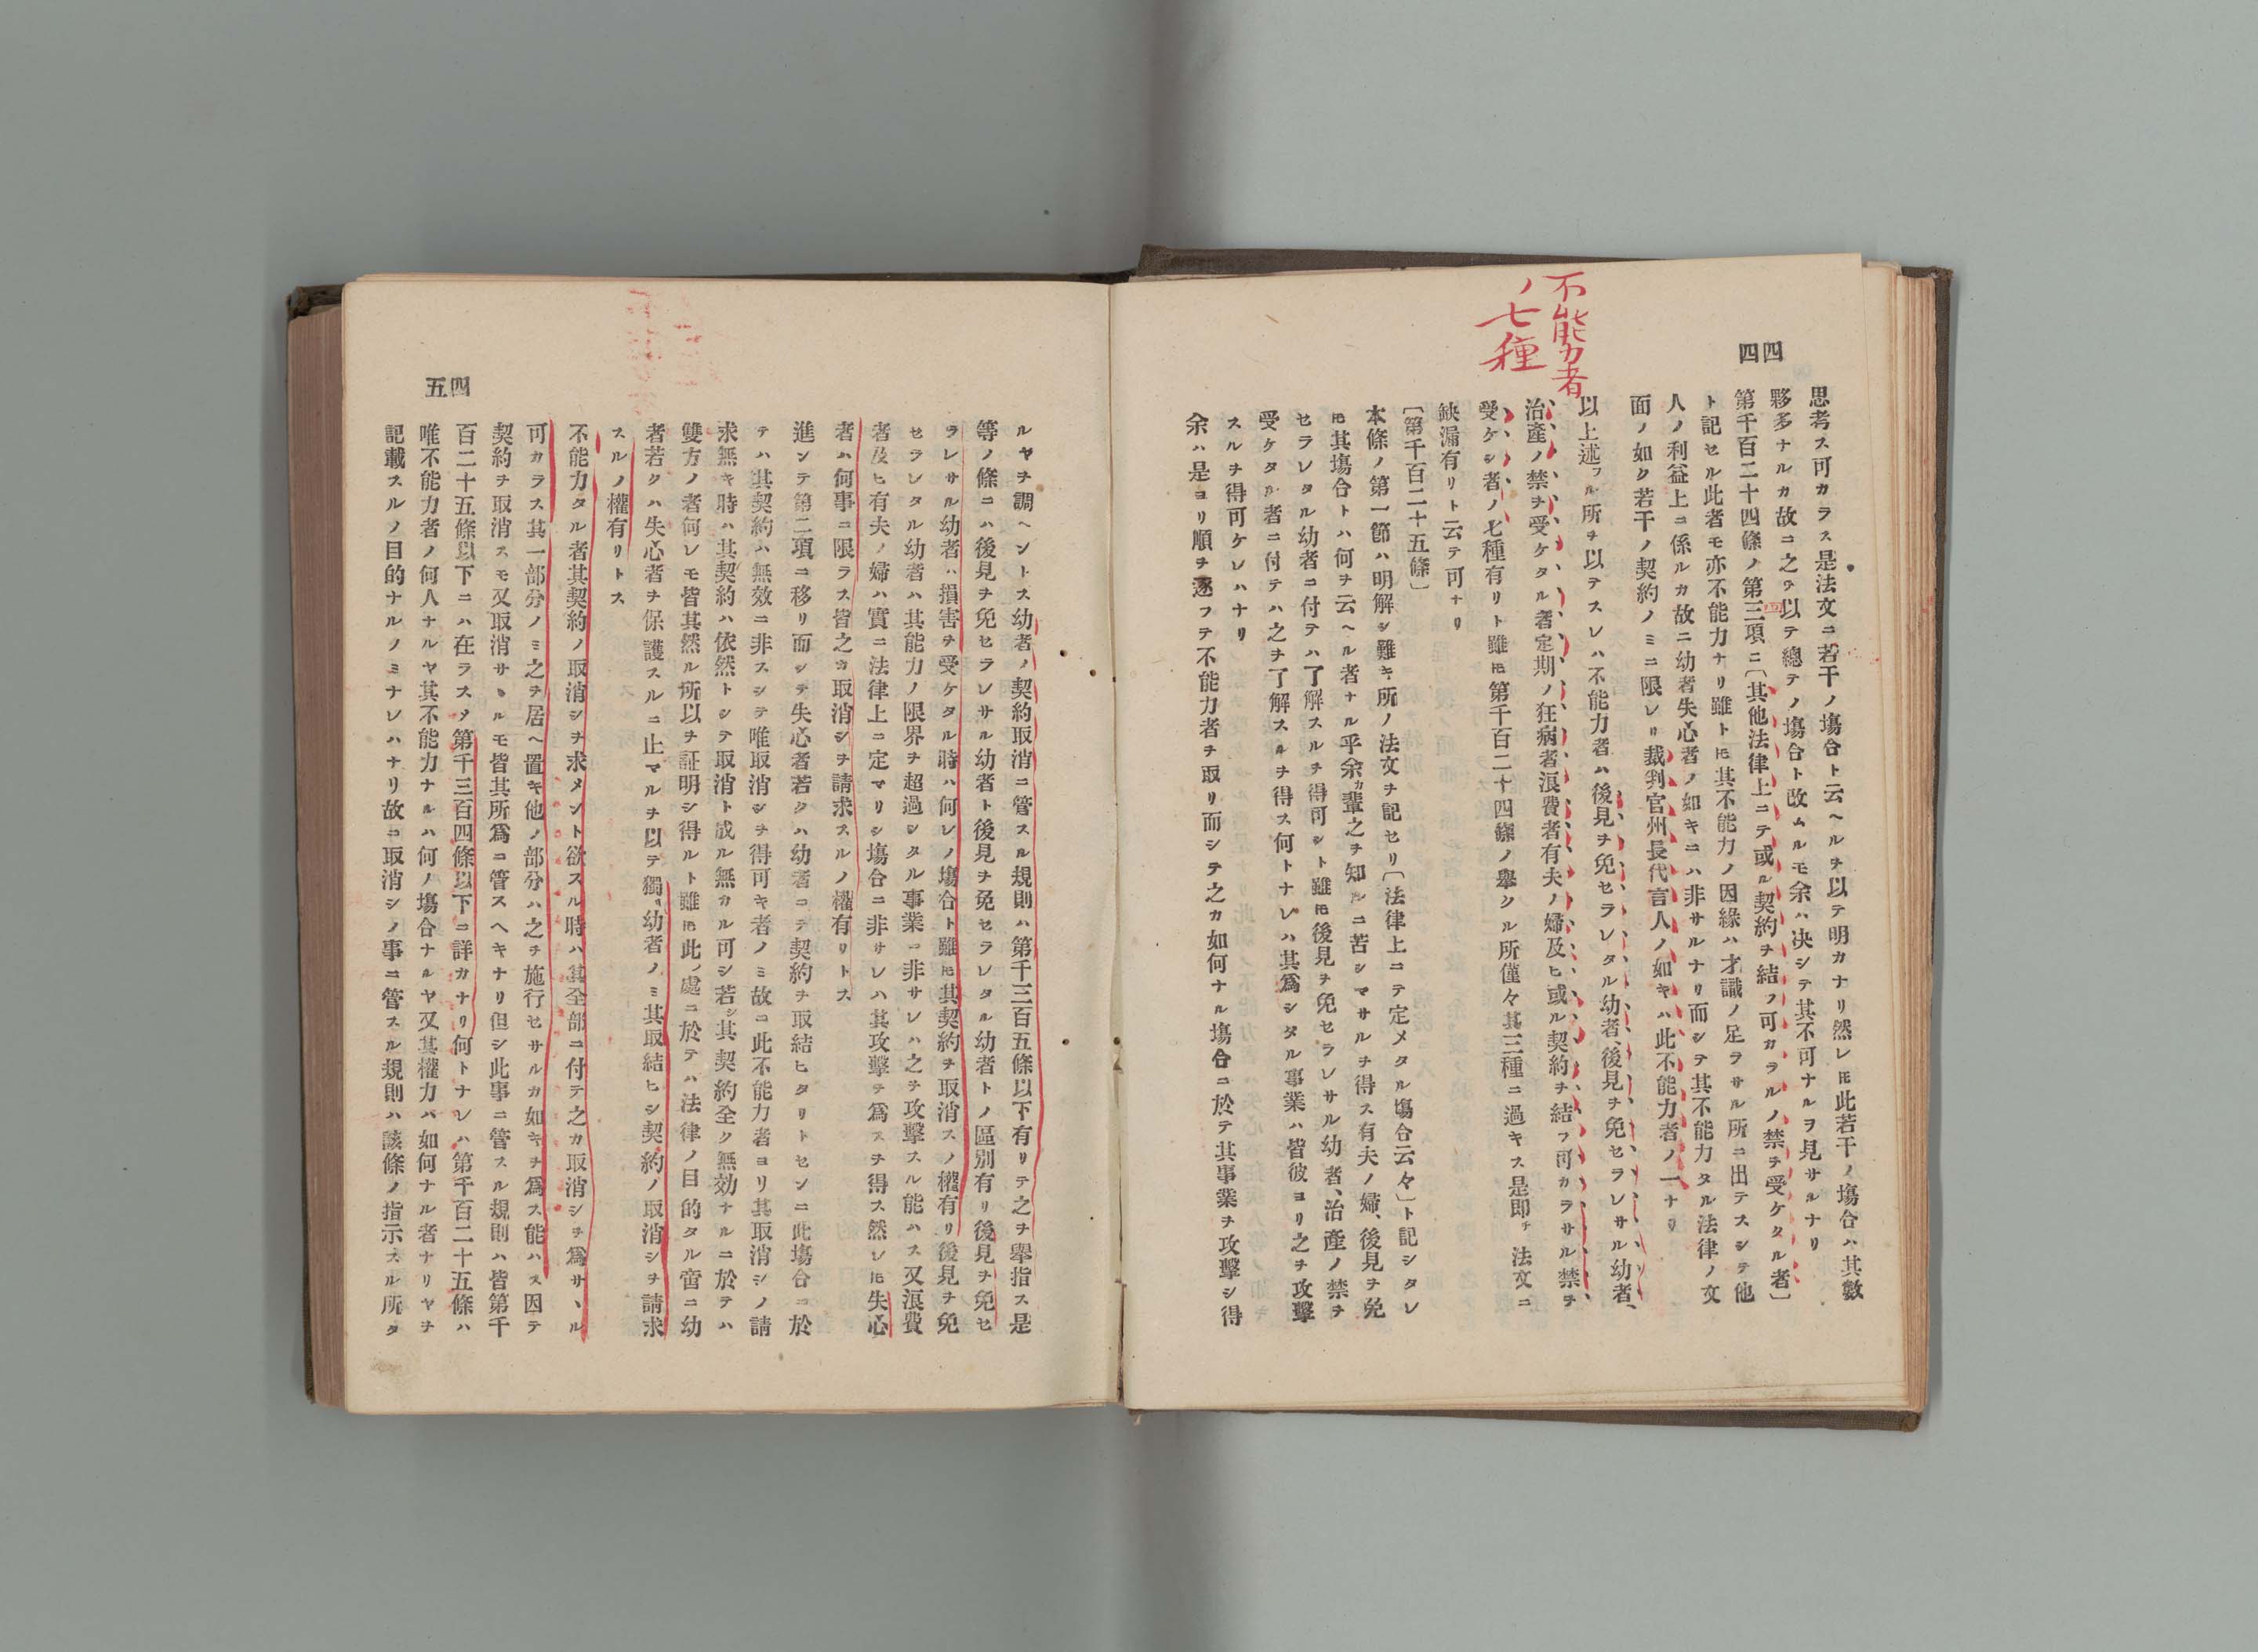 不能力者
ノ七種
四四
思考ス可カラス是法文ニ若干ノ塲合ト云ヘルヲ以テ明カナリ然レ𪜈此若干ノ塲合ハ其數
夥多ナルカ故ニ之ヲ以テ總テノ塲合ト改ムルモ余ハ决シテ其不可ナルヲ見サルナリ
第千百二十四條ノ第三項ニ〔其他法律上ニテ或ル契約ヲ結フ可カラルノ禁ヲ受ケタル者〕
ト記セル此者モ亦不能力ナリ雖ト𪜈其不能力ノ因緣ハ才識ノ足ラサル所ニ出テスシテ他
人ノ利益上ニ係ルカ故ニ幼者失心者ノ如キニハ非サルナリ而シテ其不能力タル法律ノ文
面ノ如ク若干ノ契約ノミニ限レリ裁判官州長代言人ノ如キハ此不能力者ノ一ナリ
以上述フル所ヲ以テスレハ不能力者ハ後見ヲ免セラレタル幼者、後見ヲ免セラレサル幼者、
治產ノ禁ヲ受ケタル者定期ノ狂病者浪費者有夫ノ婦及ヒ或ル契約ヲ結フ可カラサル禁ヲ
受ケシ者ノ七種有リト雖𪜈第千百二十四條ノ舉クル所僅々其三種ニ過キス是即チ法文ニ
缺漏有リト云テ可ナリ
〔第千百二十五條〕
本條ノ第一節ハ明解シ難キ所ノ法文ヲ記セリ〔法律上ニテ定メタル塲合云々〕ト記シタレ
𪜈其塲合トハ何ヲ云ヘル者ナル乎余カ輩之ヲ知ルニ苦シマサルヲ得ス有夫ノ婦、後見ヲ免
セラレタル幼者ニ付テハ了解スルヲ得可シト雖𪜈後見ヲ免セラレサル幼者、治產ノ禁ヲ
受ケタル者ニ付テハ之ヲ了解スルヲ得ス何トナレハ其爲シタル事業ハ皆彼ヨリ之ヲ攻擊
スルヲ得可ケレハナリ
余ハ是ヨリ順ヲ逐フテ不能力者ヲ取リ而シテ之カ如何ナル塲合ニ於テ其事業ヲ攻擊シ得
四五
ルヤヲ調ヘントス幼者ノ契約取消ニ管スル規則ハ第千三百五條以下有リテ之ヲ舉指ス是
等ノ條ニハ後見ヲ免セラレサル幼者ト後見ヲ免セラレタル幼者トノ區別有リ後見ヲ免セ
ラレサル幼者ハ損害ヲ受ケタル時ハ何レノ塲合ト雖𪜈其契約ヲ取消スノ權有リ後見ヲ免
セラレタル幼者ハ其能力ノ限界ヲ超過シタル事業ニ非サレハ之ヲ攻擊スル能ハス又浪費
者及ヒ有夫ノ婦ハ實ニ法律上ニ定マリシ塲合ニ非サレハ其攻擊ヲ爲スヲ得ス然レ𪜈失心
者ハ何事ニ限ラス皆之カ取消シヲ請求スルノ權有リトス
進ンテ第二項ニ移リ而シテ失心者若クハ幼者ニテ契約ヲ取結ヒタリトセンニ此塲合ニ於
テハ其契約ハ無效ニ非スシテ唯取消シヲ得可キ者ノミ故ニ此不能力者ヨリ其取消シノ請
求無キ時ハ其契約ハ依然トシテ取消ト成ル無カル可シ若シ其契約全ク無効ナルニ於テハ
雙方ノ者何レモ皆其然ル所以ヲ証明シ得ルト雖𪜈此ノ處ニ於テハ法律ノ目的タル啻ニ幼
者若クハ失心者ヲ保護スルニ止マルヲ以テ獨リ幼者ノミ其取結ヒシ契約ノ取消シヲ請求
スルノ權有リトス
不能力タル者其契約ノ取消シヲ求メント欲スル時ハ其全部ニ付テ之カ取消シヲ爲サヽル
可カラス其一部分ノミ之ヲ居ヘ置キ他ノ部分ハ之ヲ施行セサルカ如キヲ爲ス能ハス因テ
契約ヲ取消スモ又取消サヽルモ皆其所爲ニ管スヘキナリ但シ此事ニ管スル規則ハ皆第千
百二十五條以下ニハ在ラスメ第千三百四條以下ニ詳カナリ何トナレハ第千百二十五條ハ
唯不能力者ノ何人ナルヤ其不能力ナルハ何ノ塲合ナルヤ又其權力ハ如何ナル者ナリヤヲ
記載スルノ目的ナルノミナレハナリ故ニ取消シノ事ニ管スル規則ハ該條ノ指示スル所タ